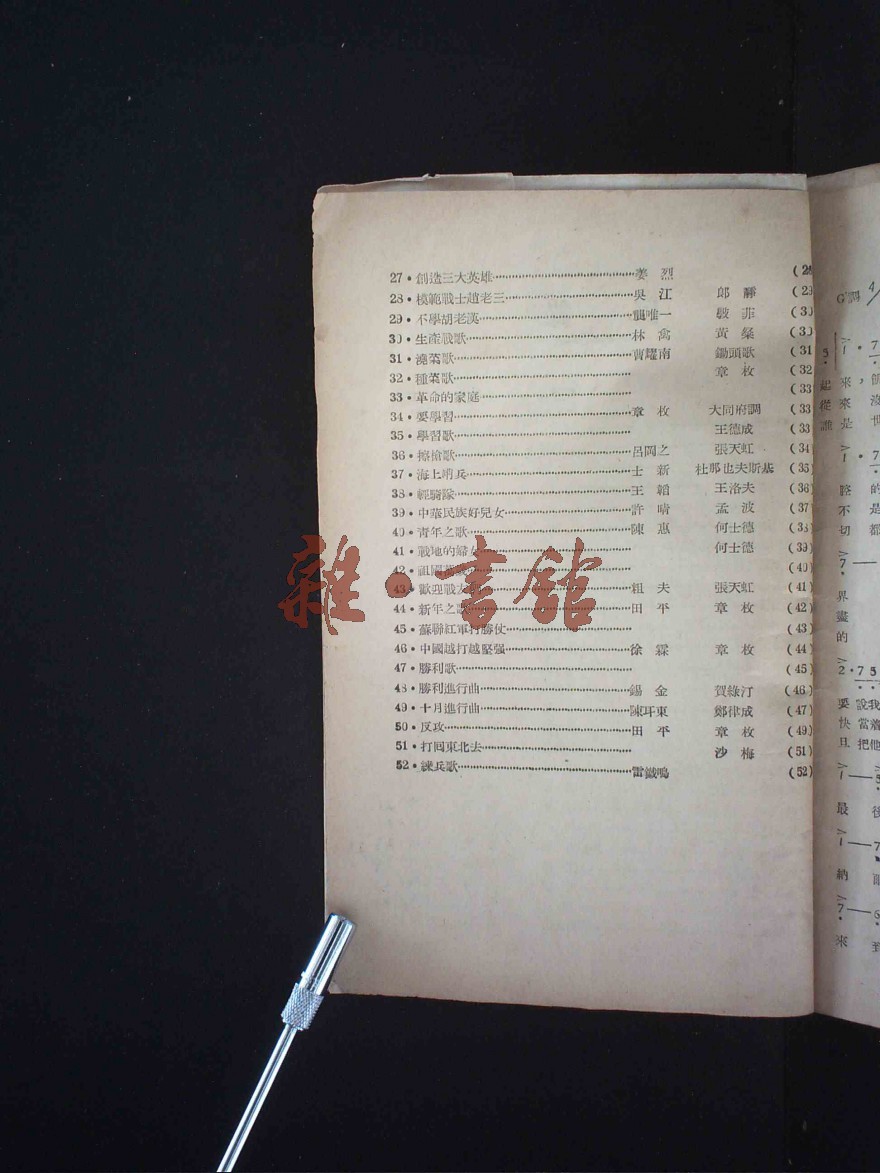 27·創造三大英雄 姜烈 (2
28·模範戰士趙老三 吳江 郎靜 (2
29·不學胡老漢 龔唯一 殷菲 (30
30·生產戰歌 林禽 黃粲 (30
31·澆菜歌 曹耀南 鋤頭歌 (31
32·種菜歌 章枚 (32
33·革命的家庭 (33
34·要學習 章枚 大同府調 (33
35·學習歌 王德成 (33
36·擦槍歌 呂岡之 張天虹 (34
37·海上哨兵 士新 杜那也夫斯基 (35)
38·輕騎隊 王韜 王洛夫 (36)
39·中華民族好兒女 許晴 孟波 (37)
40·青年之歌 陳惠 何士德 (38)
41·戰地的婦女 何士德 (39)
42·祖國 (40)
43·歡迎戰友 粗夫 張天虹 (41)
44·新年之歌 田平 章枚 (42)
45·蘇聯紅軍打勝仗 (43)
46·中國越打越堅强 徐霖 章枚 (44)
47·勝利歌 (45)
48·勝利進行曲 錫金 賀綠汀 (46)
49·十月進行曲 陳玕東 鄭律成 (47)
50·反攻 田平 章枚 (49)
51·打回東北去 沙梅 (51)
52·練兵歌 雷鐵鳴 (52)
雜·書館
G調 4/
1·7
5
起來，
從來沒
誰是世
1·7
腔的
不是
切都
7—
界
盡
的
2·7 5
要設我
快當
旦把他
1—5
最後
1—7
納
7—5
來到